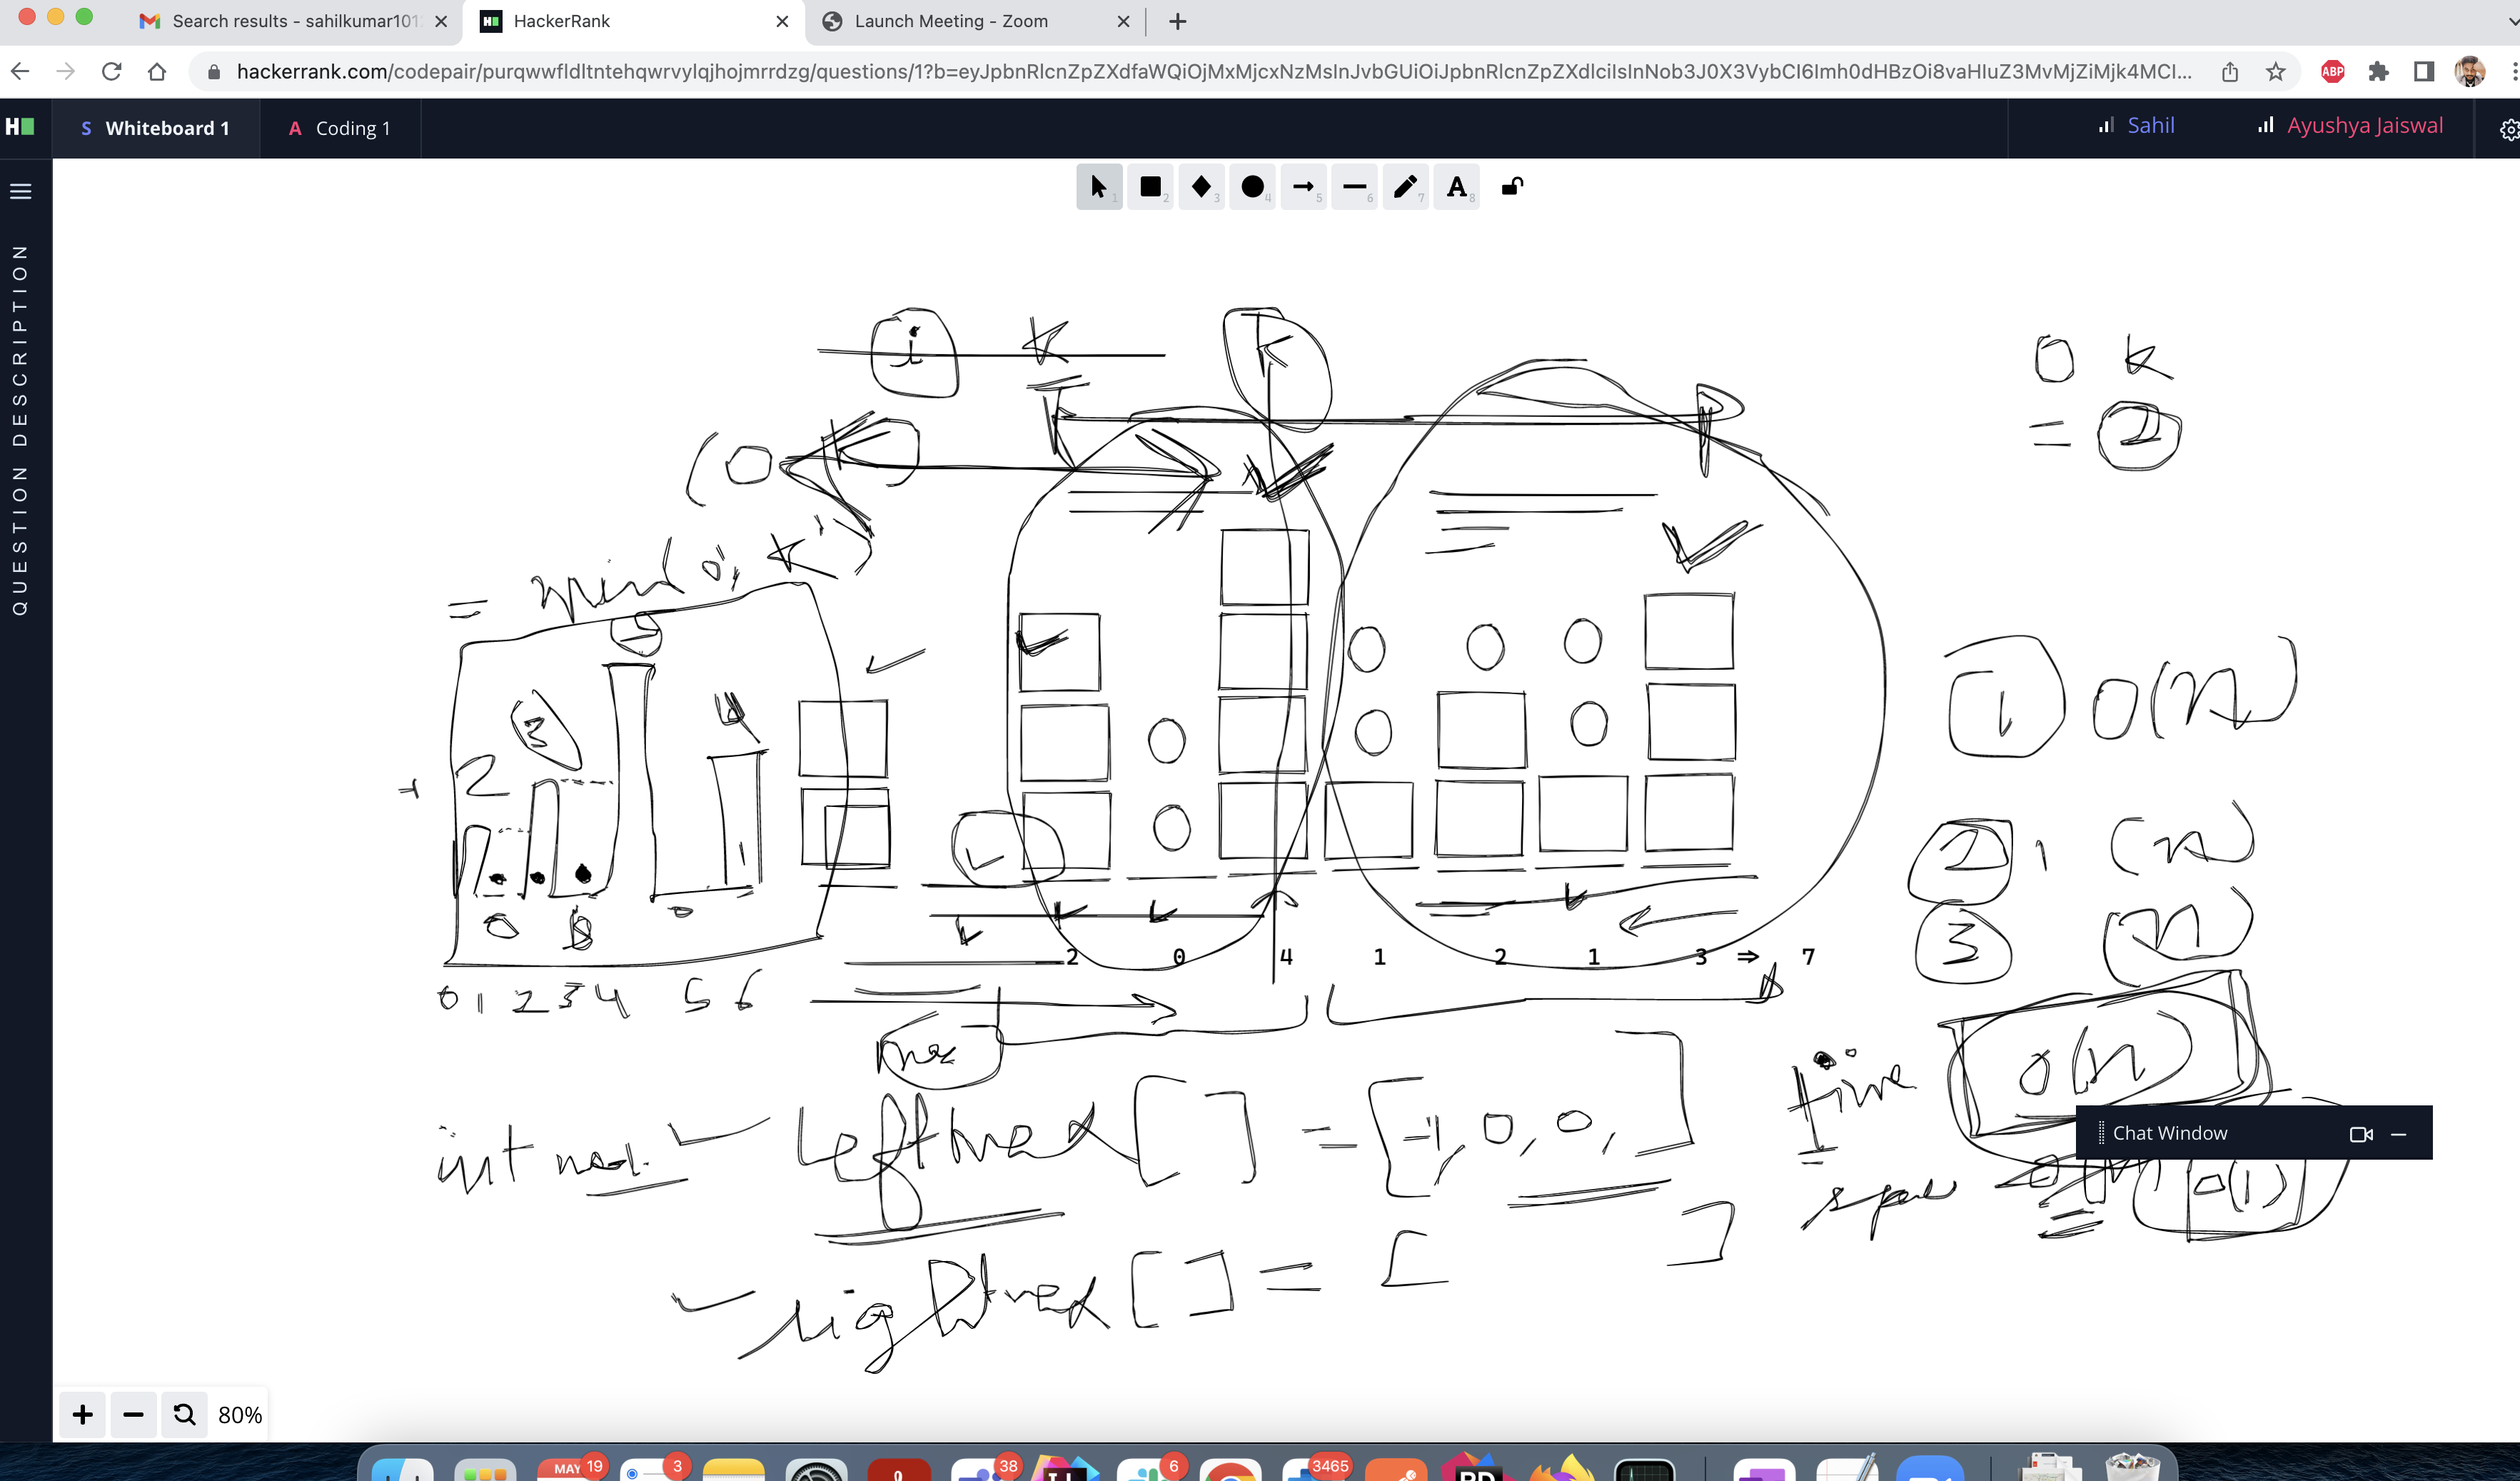 Search results - sahilkumar101
HackerRank
Launch Meeting - Zoom
hackerrank.com/codepair/purqwwfldltntehqwrvylqjhojmrrdzg/questions/1?b=eyJpbnRlcnZpZXdfaWQiOjMxMjcxNzMsInJvbGUiOiJpbnRlcnZpZXdlciIsInNob3J0X3VybCI6Imh0dHBzOi8vaHIuZ3MvMjZiMjk4MCI...
ABP
H
S Whiteboard 1
A Coding 1
Sahil
Ayushya Jaiswal
QUESTION DESCRIPTION
1 2 3 4 5 6 7 A 8
i k
k
0 k
= 2
(0 k)
= min(0, k)
3
2
4
1 O(n)
2 , (n)
3 (n)
2 0 4 1 2 1 3 ⇒ 7
0 1 2 3 4 5 6
max
time O(n)
int max leftmax [ ] = [-1, 0, 0, ]
Chat Window
space O(1)
rightmax [ ] = [ ]
80%
MAY 19
3
38
6
3465